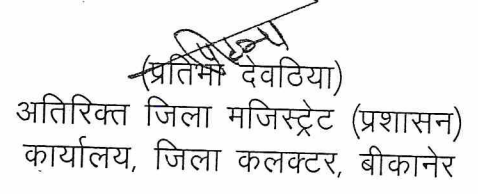 (प्रतिभा देवठिया)
अतिरिक्त जिला मजिस्ट्रेट (प्रशासन)
कार्यालय, जिला कलक्टर, बीकानेर